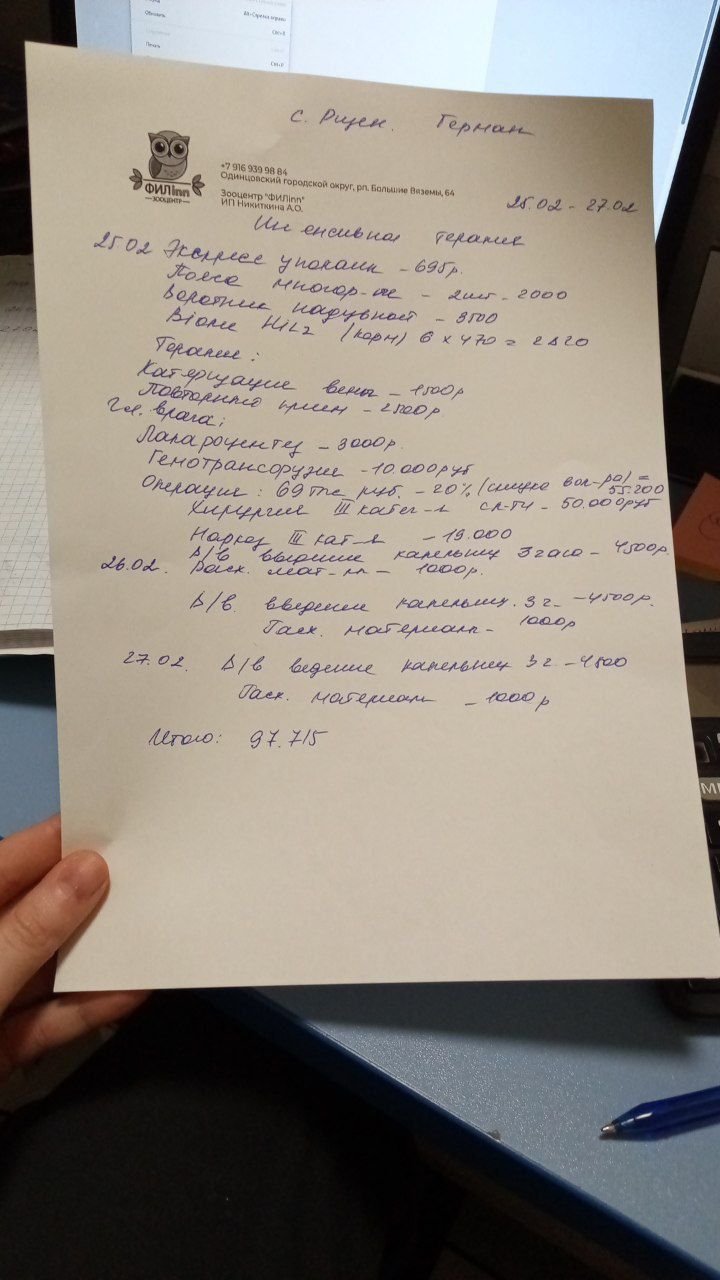 Обновить
Печать
Ctrl+R
Ctrl+P
с. Рщен. Герман
ФИЛinn
ЗООЦЕНТР
+7 916 939 98 84
Одинцовский городской округ, рп. Большие Вяземы, 64
Зооцентр "ФИЛinn"
ИП Никиткина А.О.
25.02 - 27.02
Интенсивная терапия
25 02 Экспресс - 695р.
Пояса многор-ие - 2шт - 2000
Воротник надувной - 3500
(корм) 6 x 470 = 2820
Терапия:
Катетризация вены - 1500р
Повторный прием - 2500р.
Гл. врача:
Лапароцентез - 3000р.
Гемотрансфузия - 10.000руб
Операция: 69 тыс руб. - 20% (скидка вол-ра) = 55.200
Хирургия III катег-я сл-ти - 50.000руб
Наркоз III кат-я - 19.000
В/в введение капельниц 3 часа - 4500р.
26.02. Расх. мат-лы - 1000р.
В/в. введение капельниц. 3 г. - 4500р.
Расх. материалы - 1000р
27.02. В/в ведение капельниц 3 г. - 4500
Расх. материалы - 1000р
Итого: 97.715